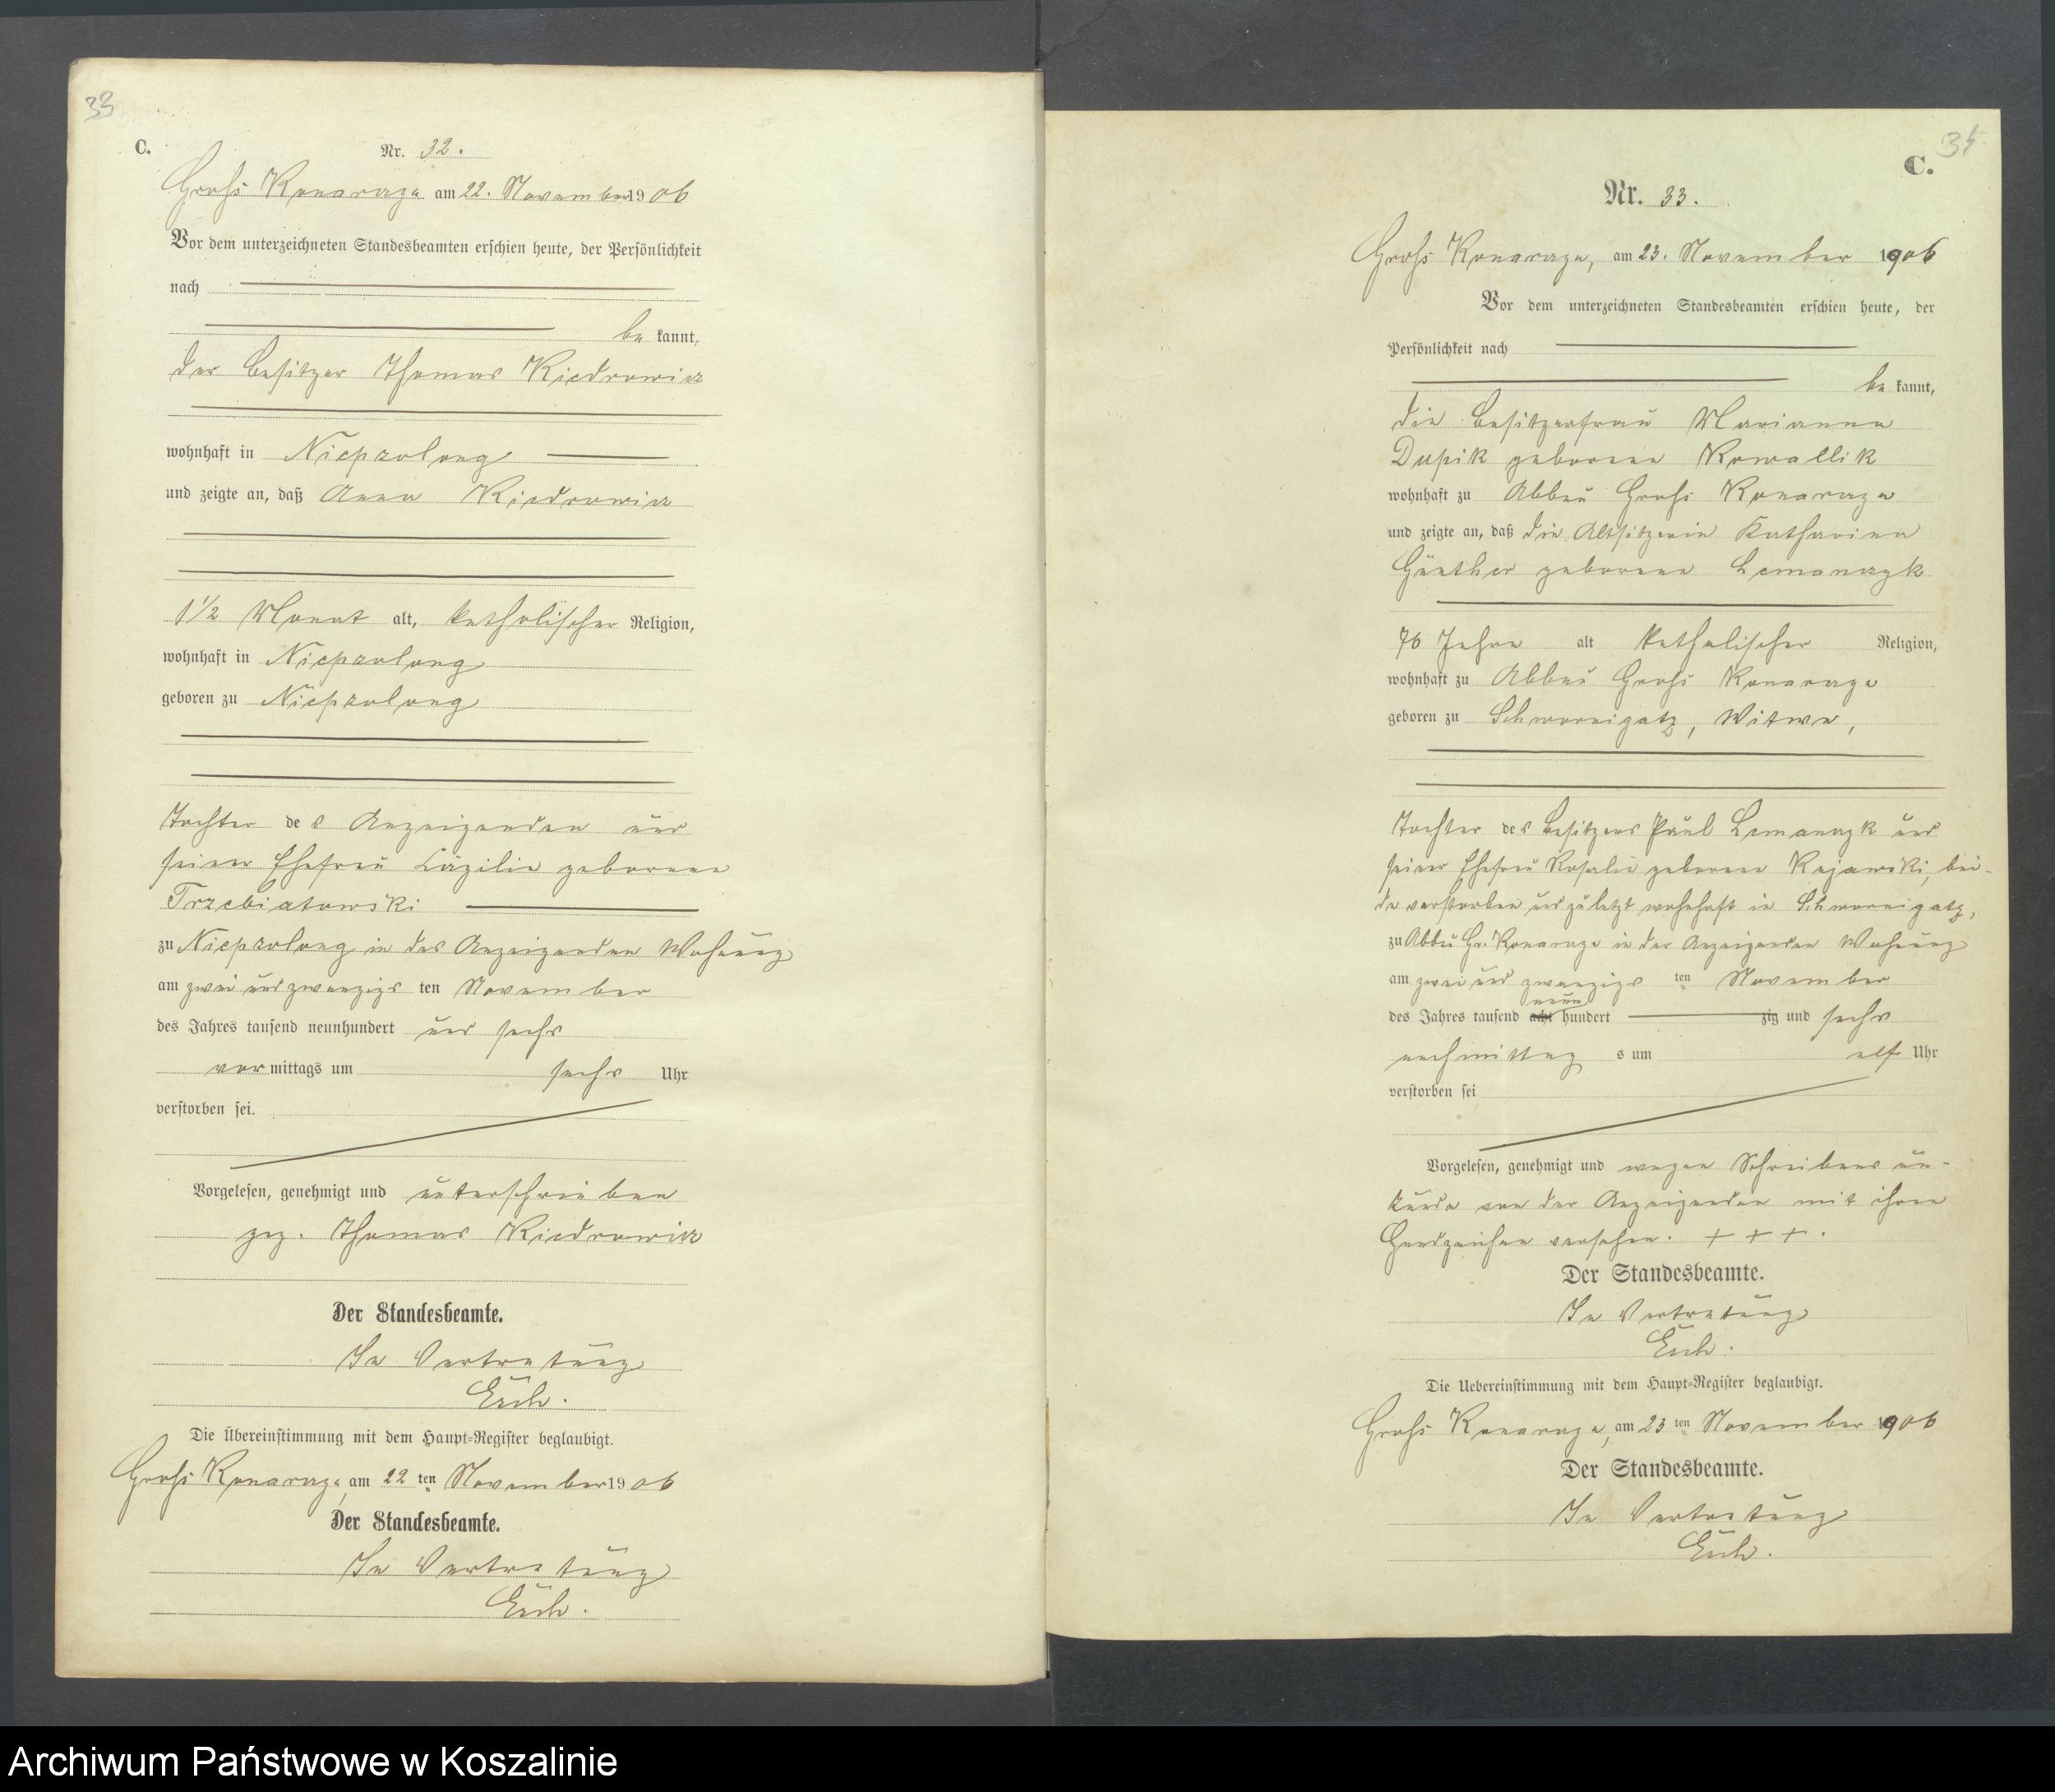 33
C.
Nr. 32.
Groß Konarczyn am 22. November 1906
Vor dem unterzeichneten Standesbeamten erschien heute, der Persönlichkeit
nach
be kannt,
der Besitzer Thomas Kiedrowicz
wohnhaft in Niepszolong
und zeigte an, daß Anna Kiedrowicz
1 1/2 Monat alt, katholischer Religion,
wohnhaft in Niepszolong
geboren zu Niepszolong
Tochter des Anzeigenden und
seiner Ehefrau Cäzilie geborene
Trzebiatowski
zu Niepszolong in des Anzeigenden Wohnung
am zwei und zwanzigs ten November
des Jahres tausend neunhundert und sechs
vor mittags um sechs Uhr
verstorben sei.
Vorgelesen, genehmigt und unterschrieben
gez. Thomas Kiedrowicz
Der Standesbeamte.
In Vertretung
Die Übereinstimmung mit dem Haupt-Register beglaubigt.
Groß Konarczyn, am 22 ten November 1906
Der Standesbeamte.
In Vertretung
34
C.
Nr. 33.
Groß Konarczyn, am 23. November 1906
Vor dem unterzeichneten Standesbeamten erschien heute, der
Persönlichkeit nach
be kannt,
die Besitzerfrau Marianna
Dupik geborene Kowallik
wohnhaft zu Abbau Groß Konarczyn
und zeigte an, daß die Altsitzerin Katharina
Günther geborene Lemanczyk
76 Jahre alt katholischer Religion,
wohnhaft zu Abbau Groß Konarczyn
geboren zu Schwornigatz, Witwe,
Tochter des Besitzers Paul Lemanczyk und
seiner Ehefrau Rosalie geborene Kujawski, bei-
de verstorben und zuletzt wohnhaft in Schwornigatz,
zu Abbau Gr. Konarczyn in der Anzeigenden Wohnung
am zwei und zwanzigs ten November
neun
des Jahres tausend acht hundert zig und sechs
nachmittag s um elf Uhr
verstorben sei
Vorgelesen, genehmigt und wegen Schreibens un-
kunde von der Anzeigenden mit ihren
Handzeichen versehen. + + +.
Der Standesbeamte.
In Vertretung
Die Uebereinstimmung mit dem Haupt-Register beglaubigt.
Groß Konarczyn, am 23 ten November 1906
Der Standesbeamte.
In Vertretung
Archiwum Państwowe w Koszalinie